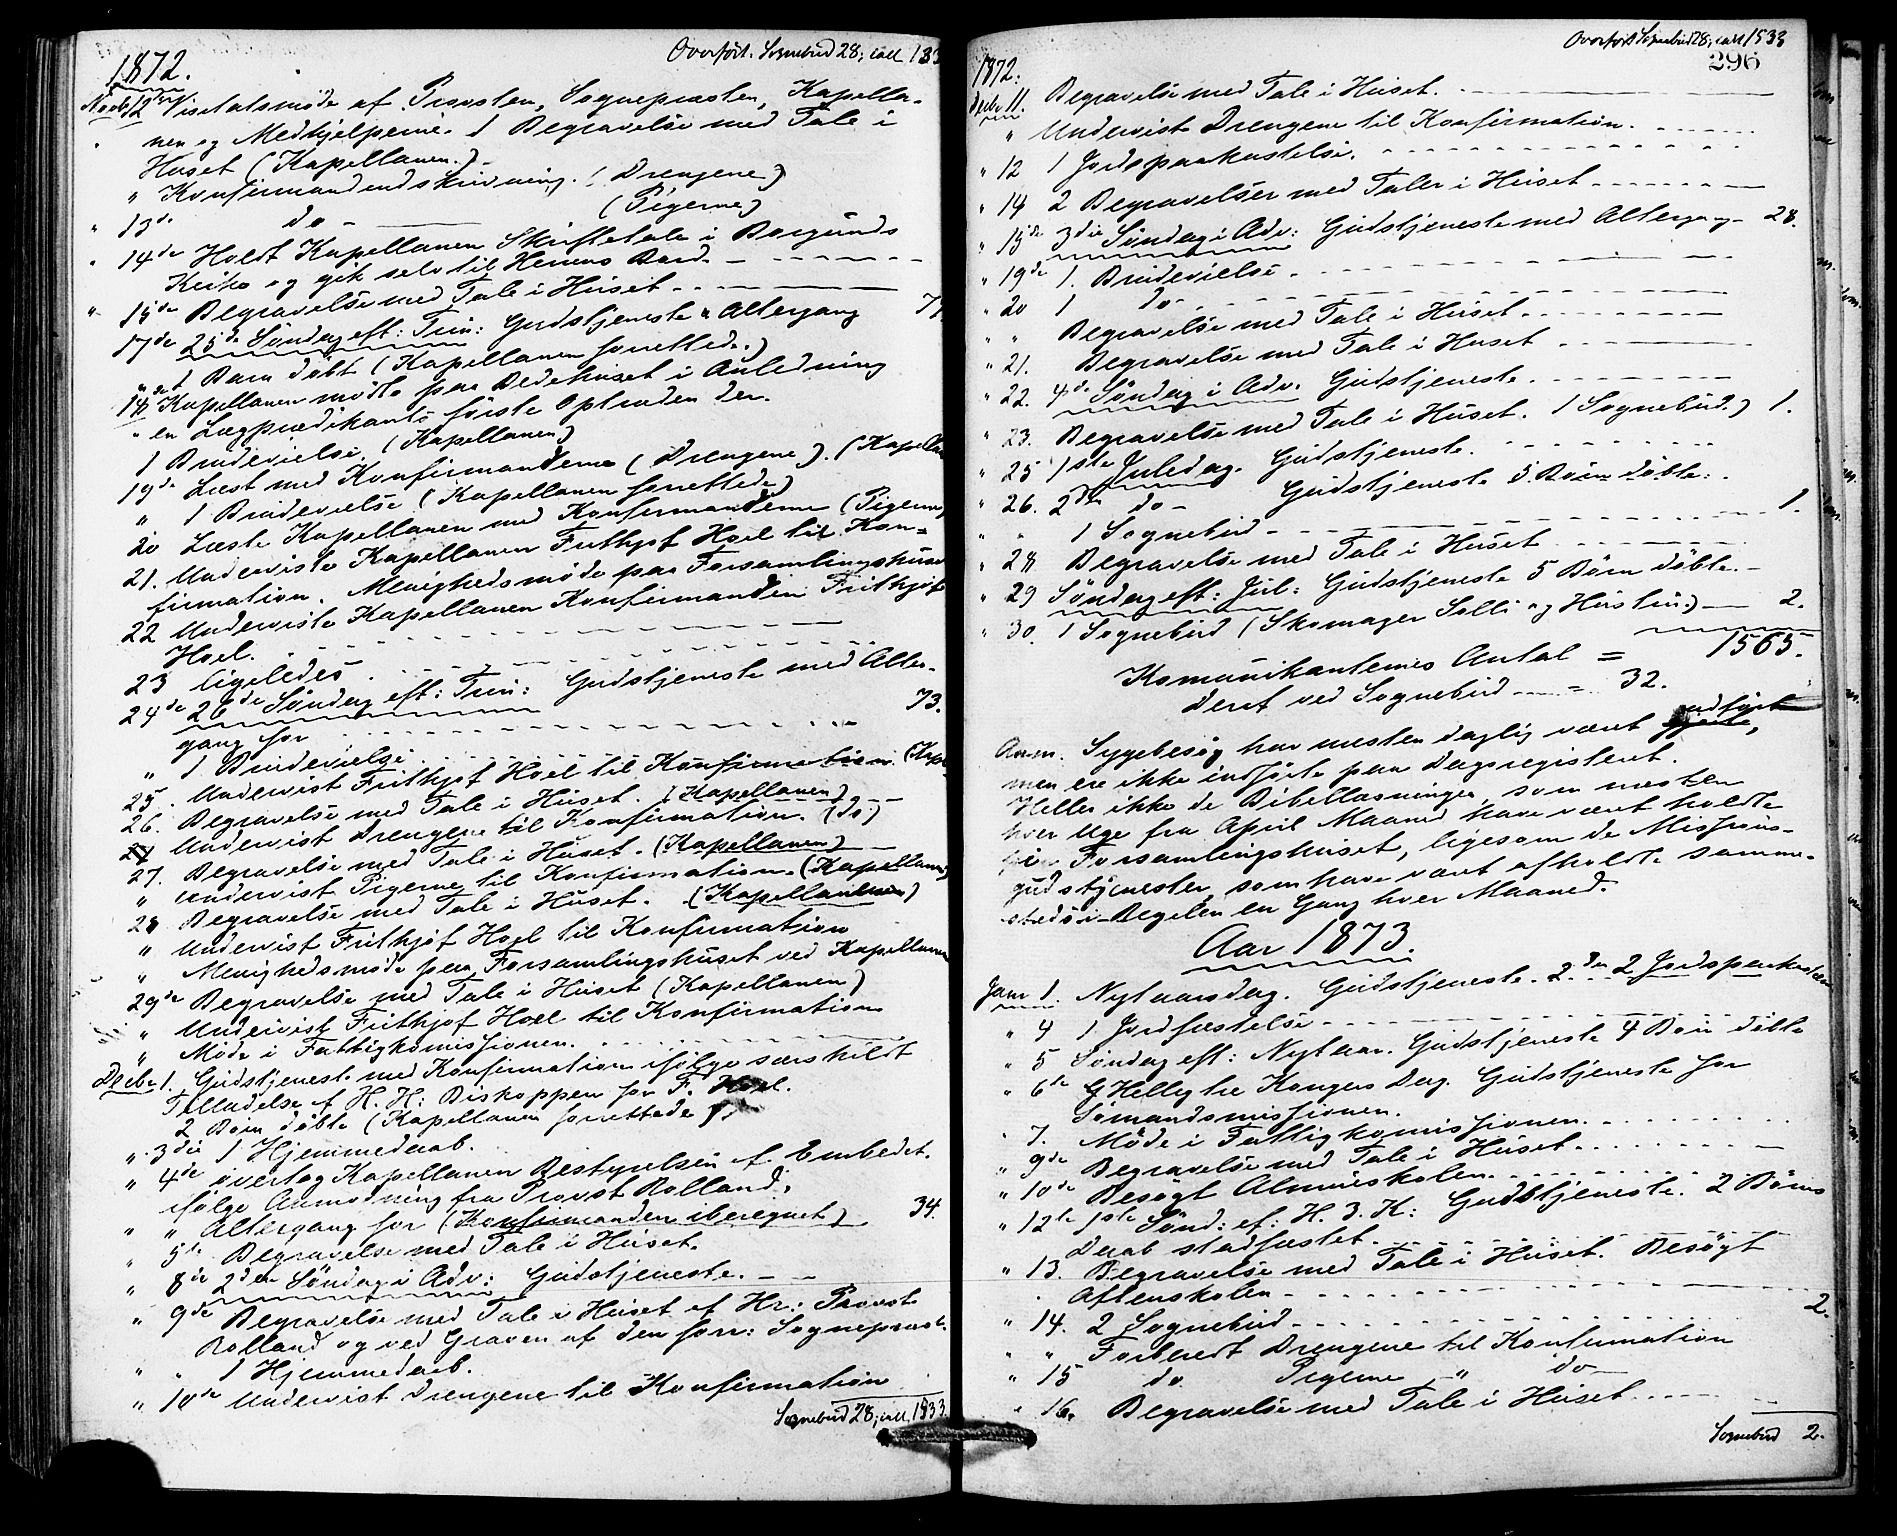 1872.
Overført. Sognebud 28; ialt 133
Novb 12te Visitatsmøde af Provsten, Sognepræsten, Kapella-
nen og Medhjelperne. 1 Begravelse med Tale i
Huset (Kapellanen.)
" Konfirmandindskrivning. (Drengene)
" 13de do - (Pigerne)
" 14de Holdt Kapellanen Skriftetale i Borgunds
Kirke og gik selv til Herrens Bord.
" 15de Begravelse med Tale i Huset
17de 25de Søndag eft: Trin: Gudstjeneste " Altergang 7
" 1 Barn døbt (Kapellanen forrettede.)
18de Kapellanen mødte paa Bedehuset i Anledning
" en Lægprædikants første Optræden der.
1 Brudevielse. (Kapellanen)
19de Læst med Konfirmanderne (Drengene). (Kapellan
" 1 Brudevielse (Kapellanen forrettede)
20 Læste Kapellanen med Konfirmanderne (Pigerne)
21. Underviste Kapellanen Frithjof Hoel til Kon=
firmation. Menighedsmøde paa Forsamlingshuset
22 Underviste Kapellanen Konfirmanden Frithjof
Hoel.
23 ligeledes
24de 26de Søndag eft: Trin: Gudstjeneste med Alter-
gang for 73.
" 1 Brudevielse
25. Undervist Frithjof Hoel til Konfirmation. (Kapel
26. Begravelse med Tale i Huset. (Kapellanen)
" Undervist Drengene til Konfirmation. (do)
27. Begravelse med Tale i Huset. (Kapellanen)
" Undervist Pigerne til Konfirmation. (Kapellanen)
28 Begravelse med Tale i Huset. (Kapellanen)
" Undervist Frithjof Hoel til Konfirmation
" Menighedsmøde paa Forsamlingshuset ved Kapellanen
29de Begravelse med Tale i Huset (Kapellanen)
" Undervist Frithjof Hoel til Konfirmation
" Møde i Fattigkomissionen.
Decbr 1. Gudstjeneste med Konfirmation ifølge særskildt
Tilladelse af H. H: Biskoppen for F. Hoel.
2 Børn døbte (Kapellanen forrettede)
" 3die 1 Hjemmedaab.
" 4de overtog Kapellanen Bestyrelsen af Embedet.
ifølge Anmodning fra Provst Rolland.
" " Altergang for (Konfirmanden iberegnet) 34.
" 5te Begravelse med Tale i Huset.
" 8de 2den Søndag i Adv: Gudstjeneste.
" 9de Begravelse med Tale i Huset af Hr: Provst
Rolland og ved Graven af den forr: Sognepræst.
" " 1 Hjemmedaab.
" 10de Undervist Drengene til Konfirmation
Sognebud 28; ialt 1533.
Overført Sognebud 28; ialt 1533
296
1872.
Decbr 11. Begravelse med Tale i Huset.
" Undervist Drengene til Konfirmation.
" 12 1 Jordspaakastelse.
" 14 2 Begravelser med Taler i Huset
" 15de 3die Søndag i Adv: Gudstjeneste med Altergang 28.
" 19de 1. Brudevielse
" 20 1 do
" " Begravelse med Tale i Huset
" 21. Begravelse med Tale i Huset
" 22. 4de Søndag i Adv. Gudstjeneste.
" 23. Begravelse med Tale i Huset. 1 Sognebud.) 1.
" 25 1ste Juledag. Gudstjeneste.
" 26. 2den do - Gudstjeneste 5 Børn døbte.
" " 1 Sognebud 1.
" 28 Begravelse med Tale i Huset
" 29 Søndag eft: Jul: Gudstjeneste 5 Børn døbte.
" 30. 1 Sognebud (Skomager Solli og Hustru) 2.
Komunikanternes Antal = 1565.
Deraf ved Sognebud = 32.
Anm. Sygebesøg har næsten daglig været udført
men ere ikke indførte paa Dagsregisteret.
Heller ikke de Bibellæsninger, som næsten
hver Uge fra April Maaned have været holdte
Forsamlingshuset, ligesom de Missions-
gudstjenester, som have været afholdte samme-
steds i Regelen en Gang hver Maaned.
Aar 1873.
Janr 1. Nytaarsdag. Gudstjeneste. 2den 2 Jordspaakastelser
" 4 1 Jordfæstelse
" 5 Søndag eft: Nytaar. Gudstjeneste 4 Børn døbte
" 6te Hellig tre Kongers Dag. Gudstjeneste for
Sømandsmissionen.
" 7. Møde i Fattigkomissionen.
" 9de Begravelse med Tale i Huset.
" 10de Besøgt Almueskolen.
" 12te 1ste Sønd: ef: H. 3. K: Gudstjeneste. 2 Børns
Daab stadfæstet.
" 13. Begravelse med Tale i Huset. Besøgt
Aftenskolen
" 14. 2 Sognebud 2.
" " Forberedt Drengene til Konfirmation
" 15 do. Pigerne " do
" 16. Begravelse med Tale i Huset
Sognebud 2.